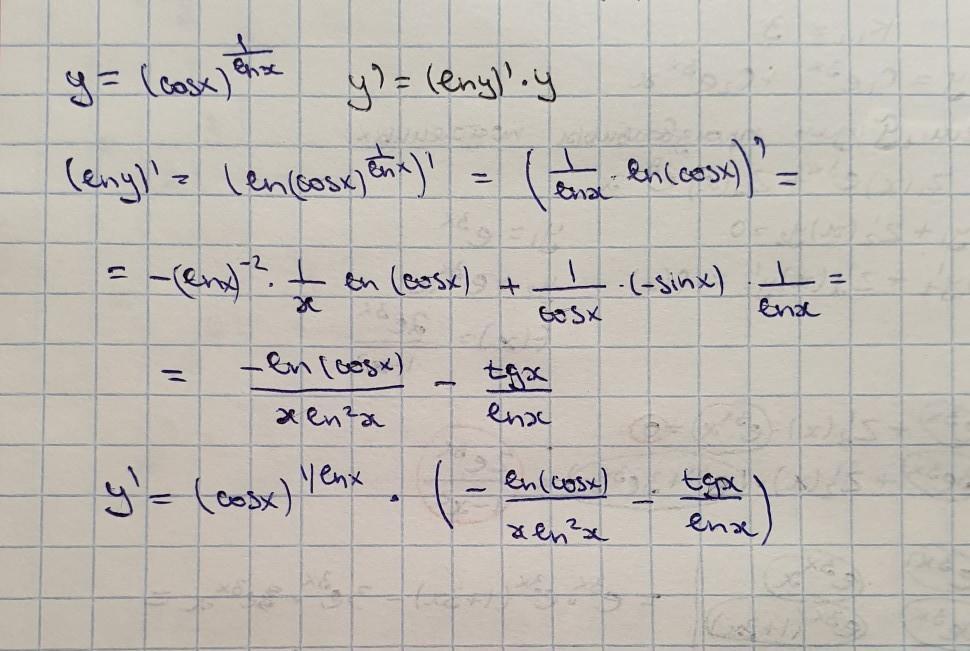 y = (cosx)^(1/lnx) y' = (lny)'·y
(lny)' = (ln(cosx)^(1/lnx))' = (1/lnx · ln(cosx))' =
= -(lnx)^-2 · 1/x ln(cosx) + 1/cosx · (-sinx) · 1/lnx =
= -ln(cosx)/(x ln²x) - tgx/lnx
y' = (cosx)^(1/lnx) · (- ln(cosx)/(x ln²x) - tgx/lnx)